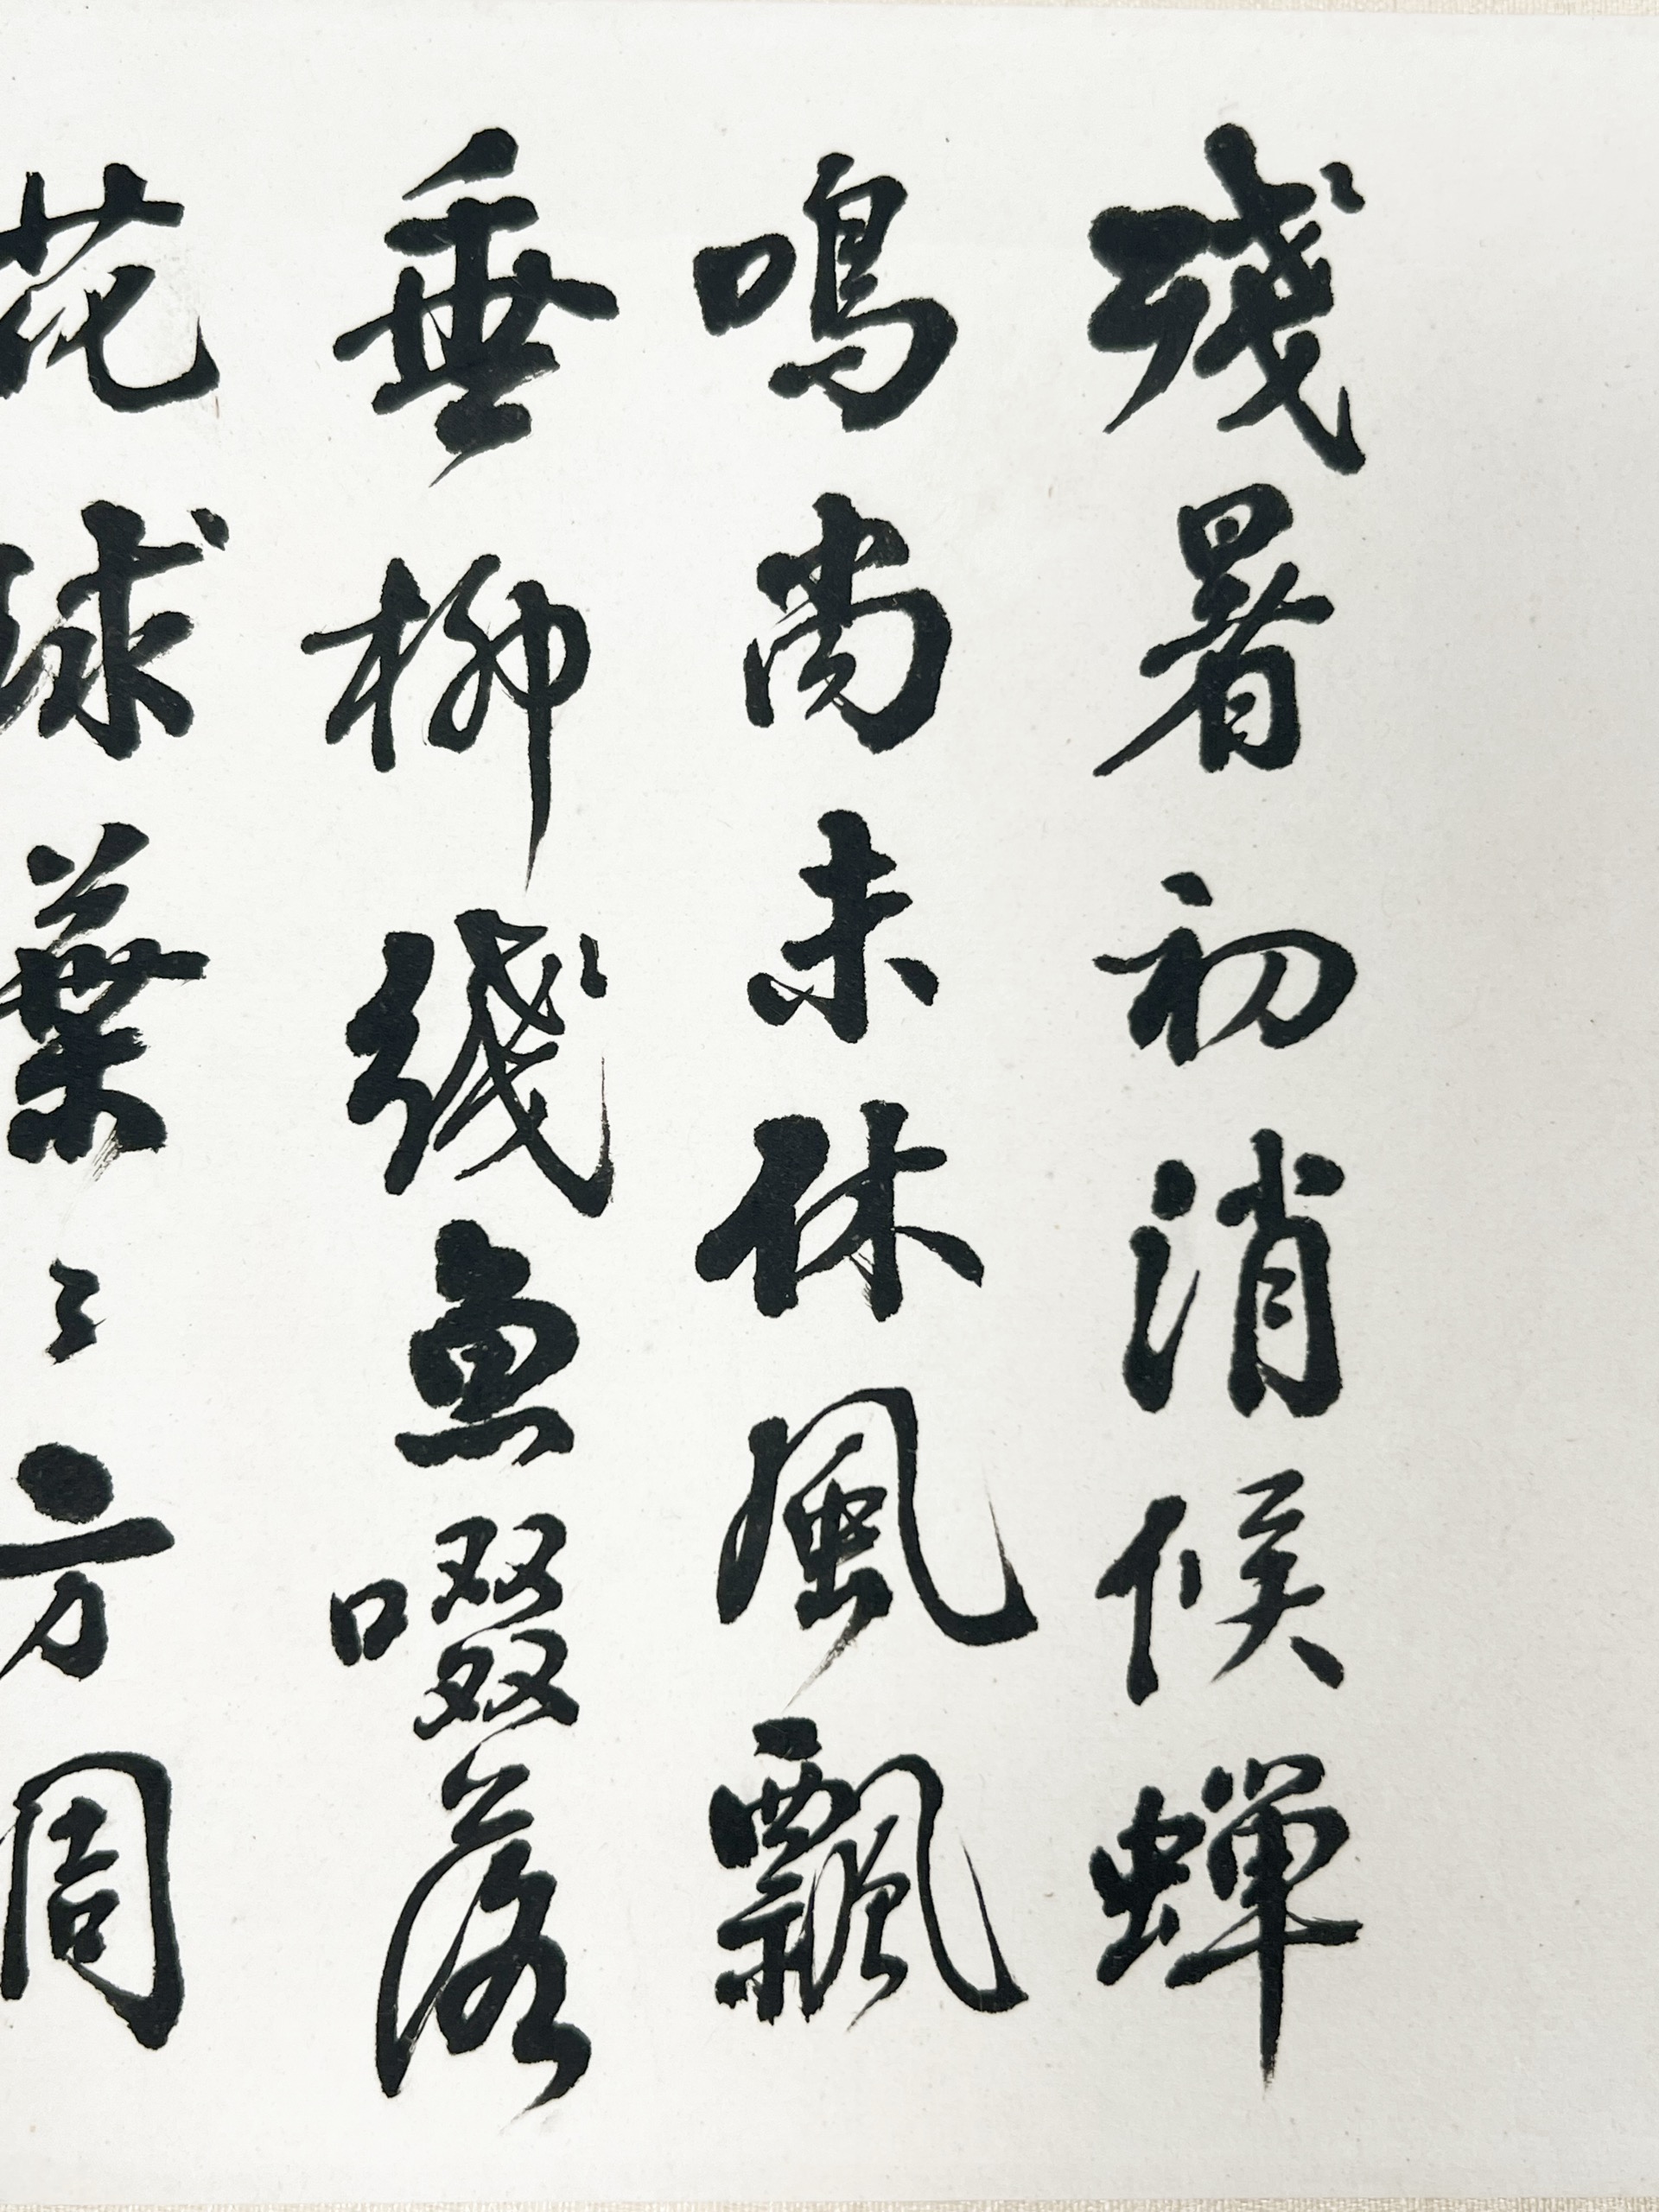 殘暑初消候蟬
鳴尚未休風飄
垂柳綫魚啜落
花球葉〻方周